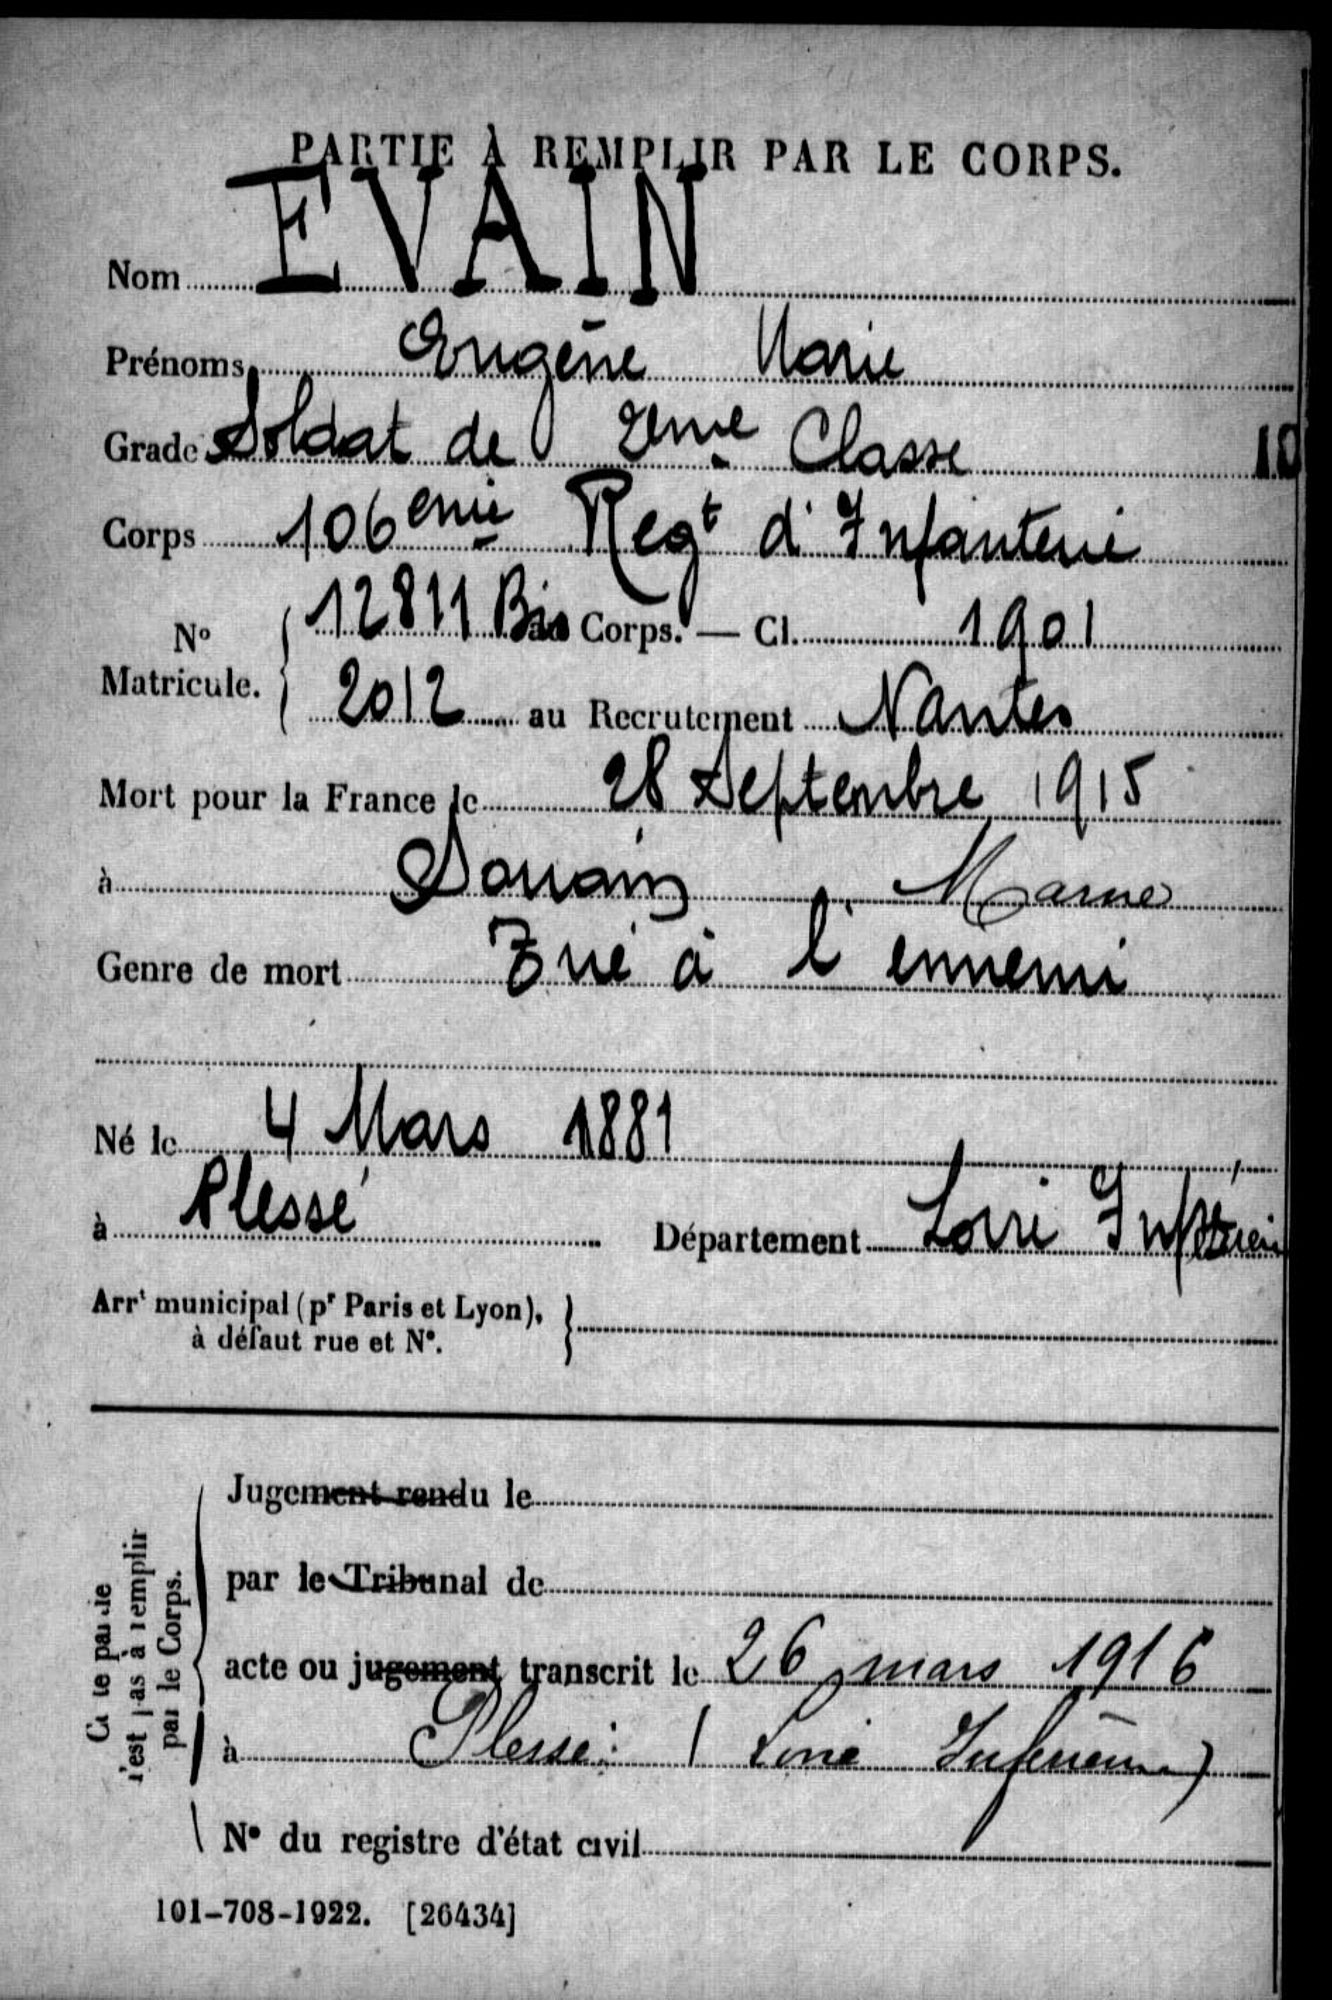 PARTIE À REMPLIR PAR LE CORPS.
Nom EVAIN
Prénoms Eugène Marie
Grade Soldat de 2eme Classe 10
Corps 106eme Regt d'Infanterie
N° Matricule. 12811 Bis au Corps. — Cl. 1901
2012 au Recrutement Nantes
Mort pour la France le 28 Septembre 1915
à Souain Marne
Genre de mort Tué à l'ennemi
Né le 4 Mars 1881
à Plessé Département Loire Inférieure
Arrt municipal (pr Paris et Lyon),
à défaut rue et N°.
Cette partie
n'est pas à remplir
par le Corps.
Jugement rendu le
par le Tribunal de
acte ou jugement transcrit le 26 mars 1916
à Plessé (Loire Inférieure)
N° du registre d'état civil
101-708-1922. [26434]